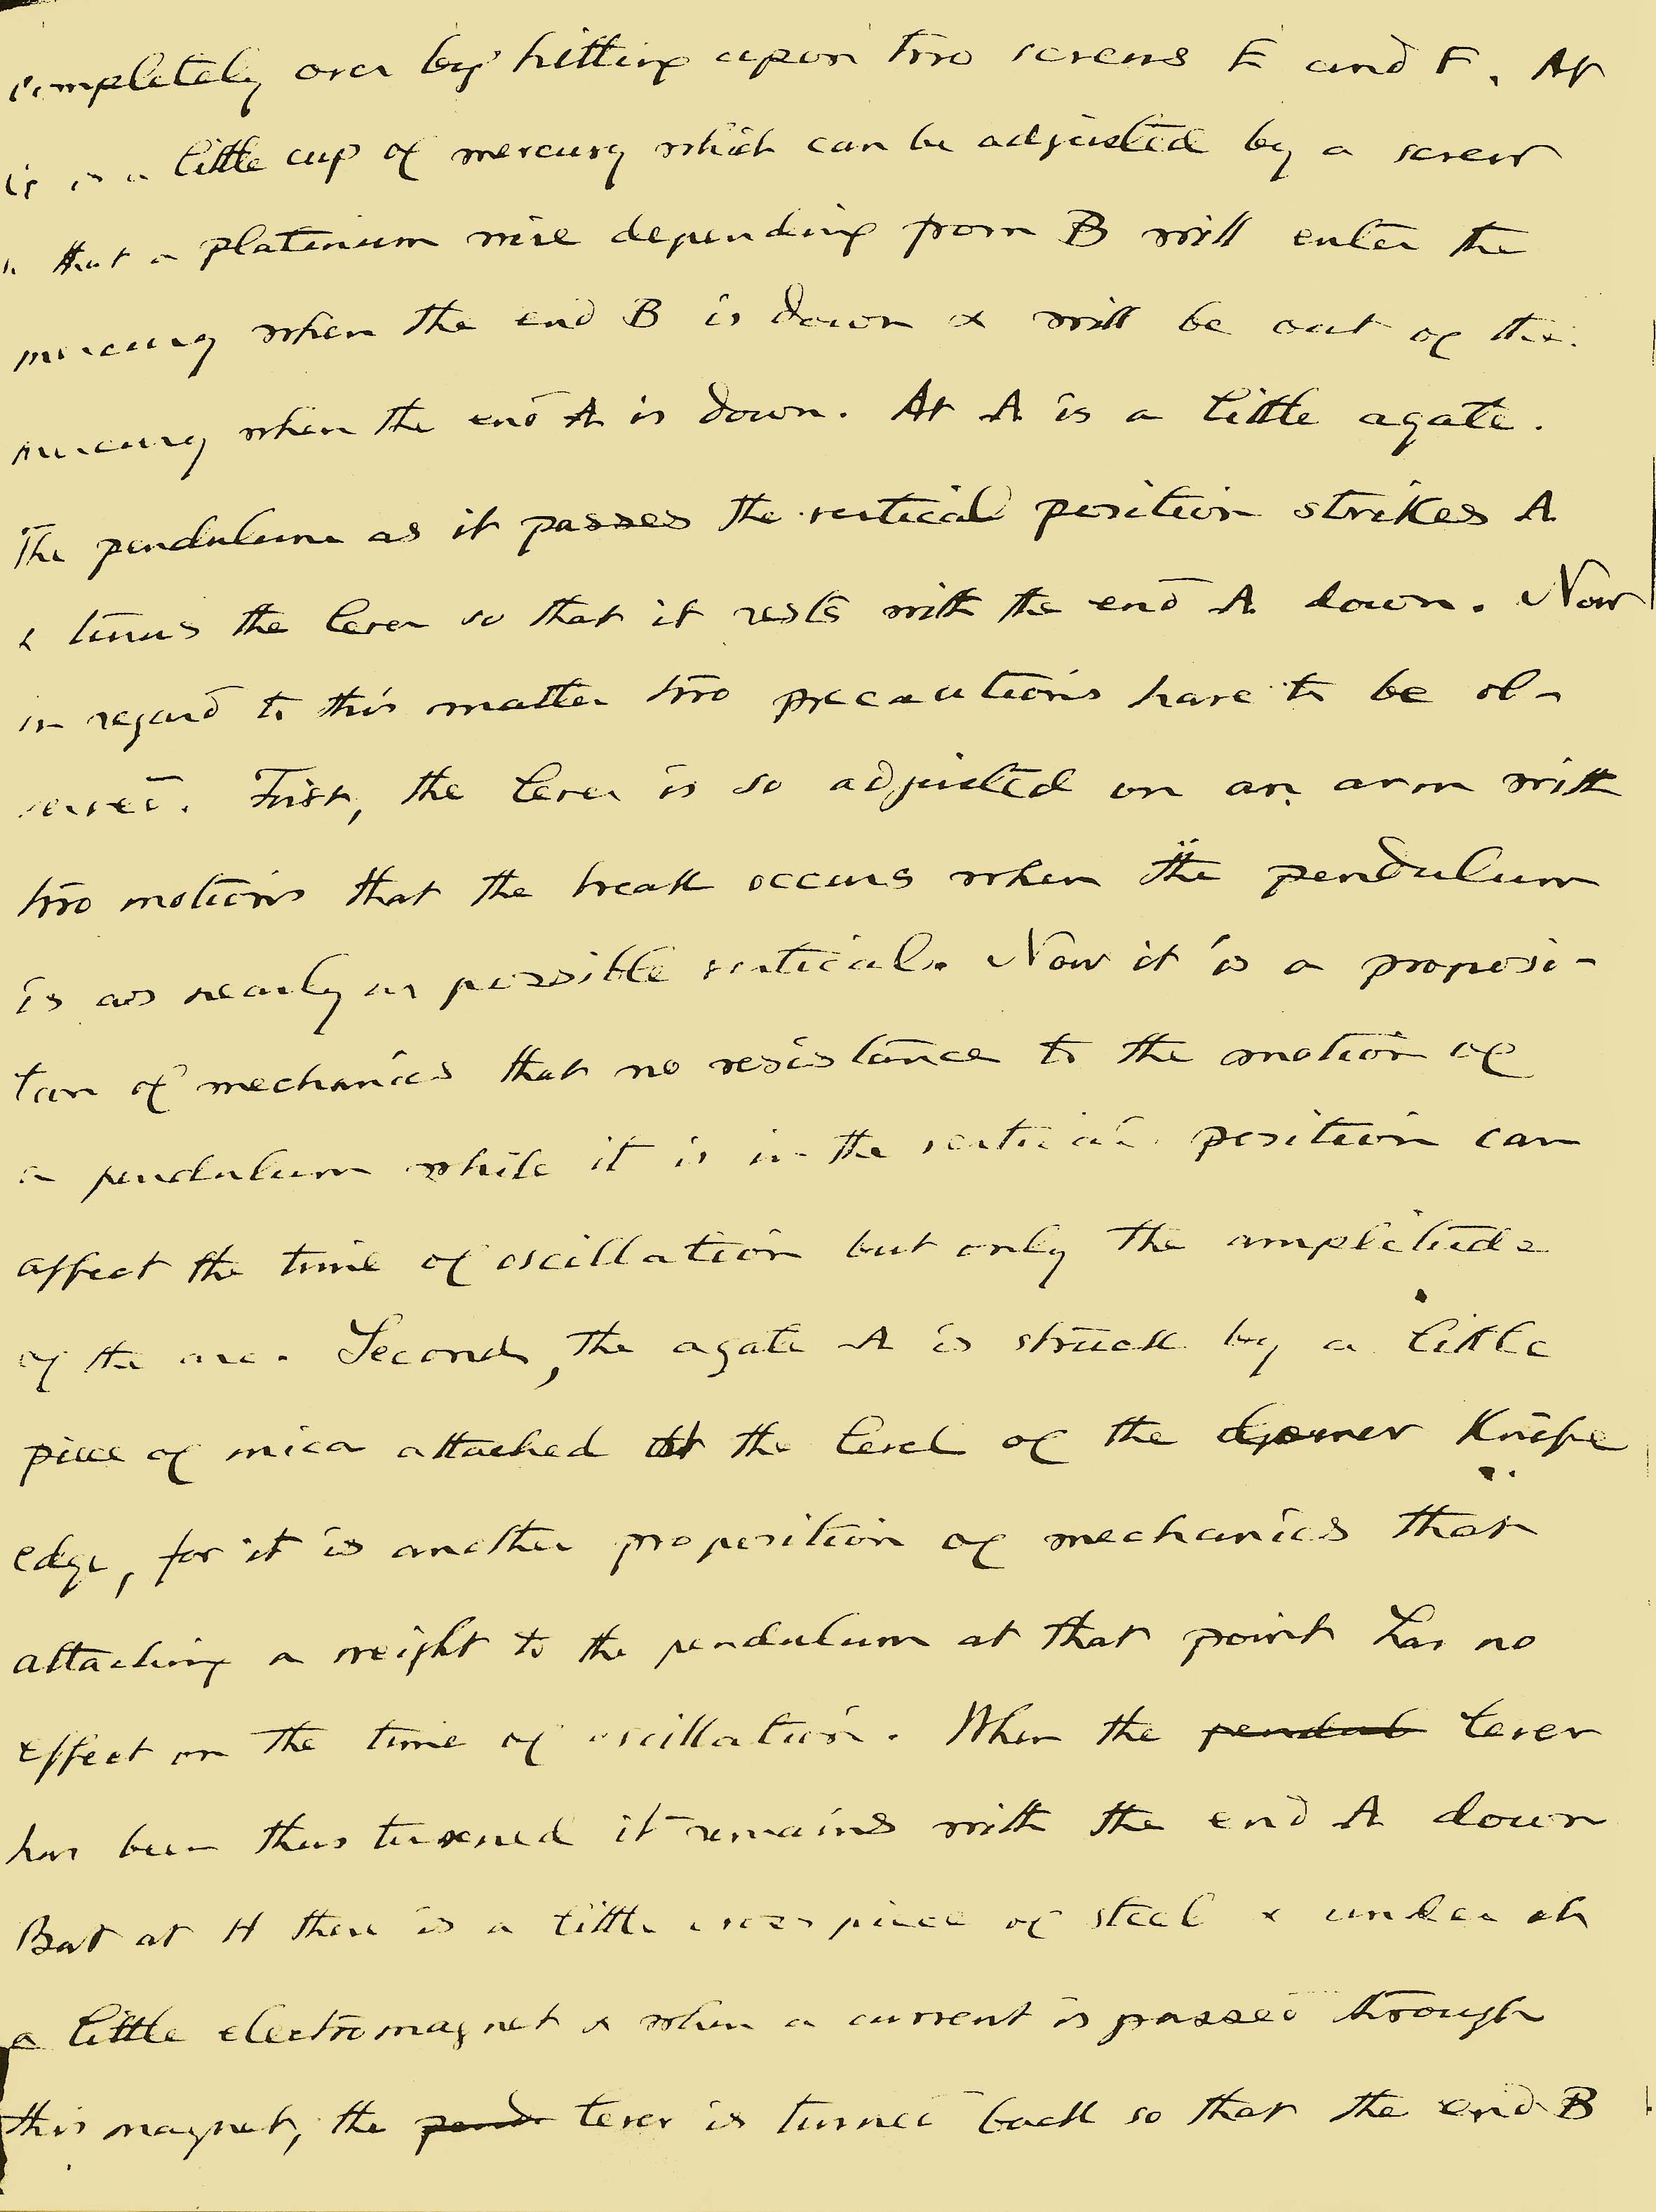 completely over by hitting upon two screws E and F. At
is a little cup of mercury which can be adjusted by a screw
that a platinum wire depending from B will enter the
mercury when the end B is down & will be out of the
mercury when the end A is down. At A is a little agate.
The pendulum as it passes the vertical position strikes A
& turns the lever so that it rests with the end A down. Now
in regard to this matter two precautions have to be ob-
served. First, the lever is so adjusted on an arm with
two motions that the break occurs when the pendulum
is as nearly as possible vertical. Now it is a proposi-
tion of mechanics that no resistance to the motion of
a pendulum while it is in the vertical position can
affect the time of oscillation but only the amplitude
of the arc. Second, the agate A is struck by a little
piece of mica attached at the level of the lower knife
edge, for it is another proposition of mechanics that
attaching a weight to the pendulum at that point has no
effect on the time of oscillation. When the pendul lever
has been thus turned it remains with the end A down
But at H there is a little cross piece of steel & under it
a little electromagnet & when a current is passed through
this magnet, the pend lever is turned back so that the end B